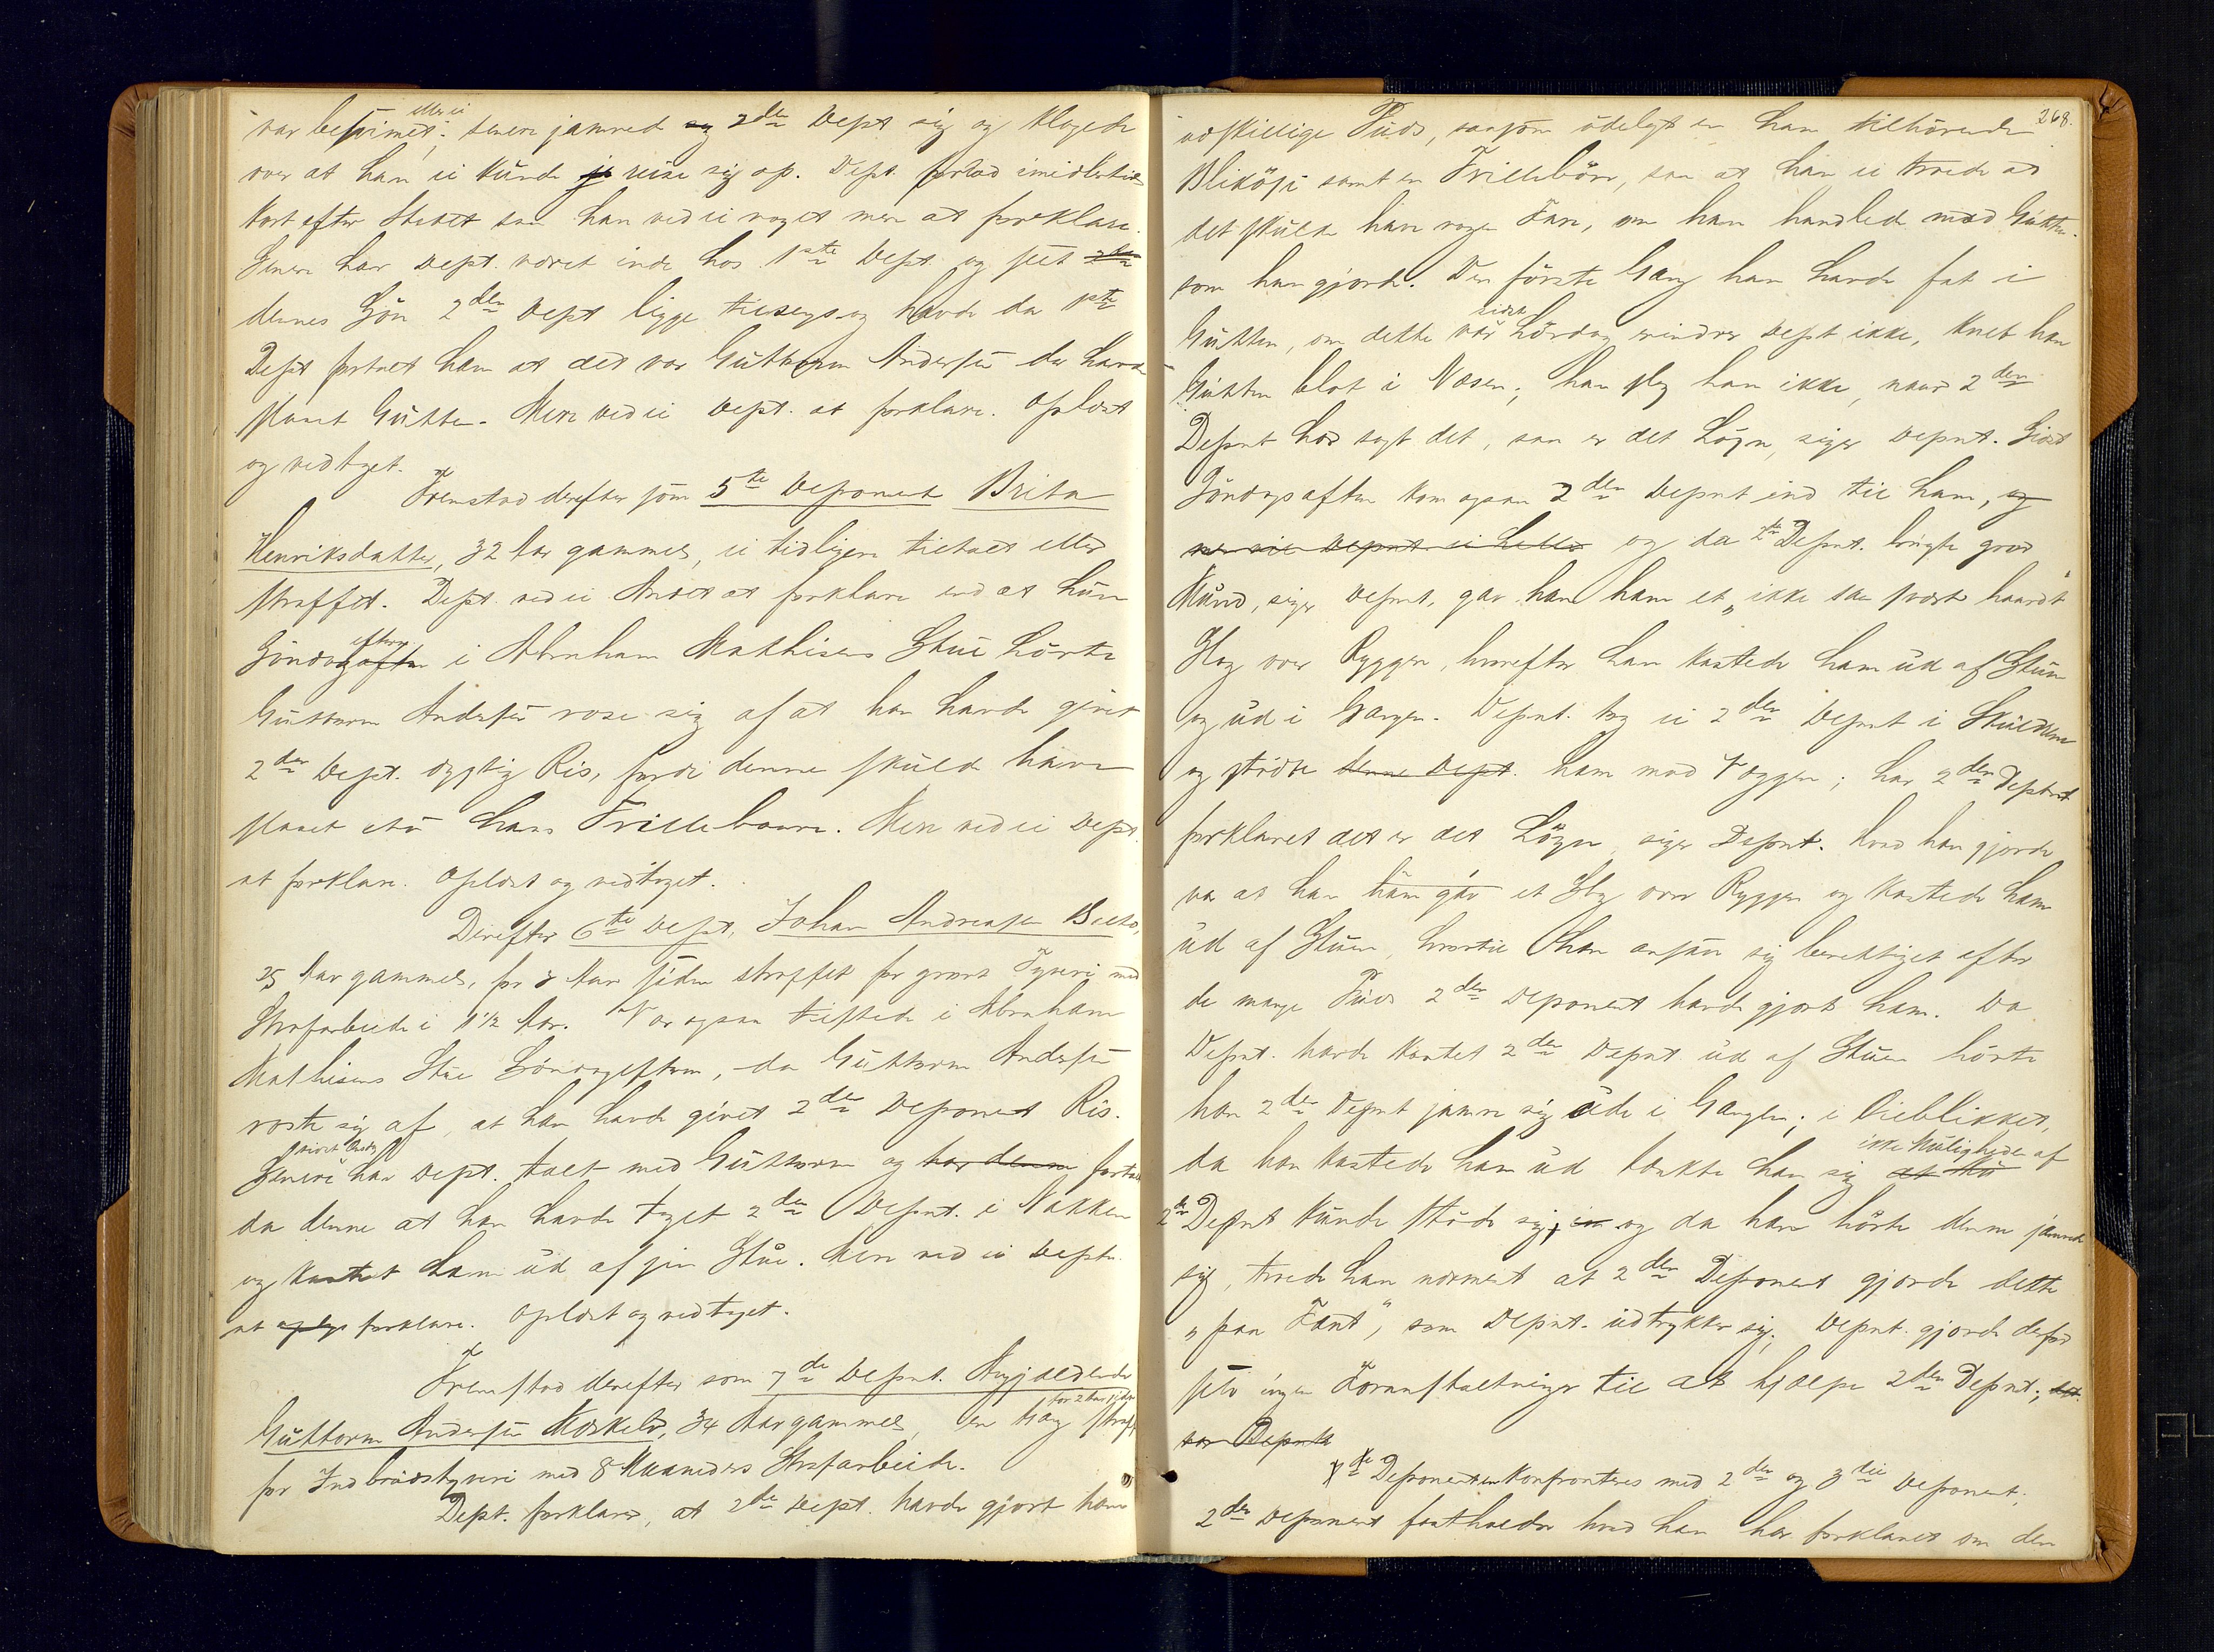 var besvimet eller ei; senere jamred og 2den Dept sig og klagede
over at han ei kunde reise sig op. Dept. forlod imidlertid
kort efter Stedet saa han ved ei noget mere at forklare.
Senere har Dept. været inde hos 1ste Dept og seet
dennes Søn 2den Dept ligge tilsengs og havde da 1ste
Dept fortalt ham at det var Guttorm Andersen der havde
slaaet Gutten. Mere ved ei Dept. at forklare. Oplæst
og vedtaget.
Fremstod derefter som 5te Deponent Brita
Henriksdatter, 32 Aar gammel, ei tidligere tiltalt eller
straffet. Dept. ved ei Andet at forklare end at hun
Søndag efterm i Abraham Mathisens Stue hørte
Guttorm Andersen rose sig af at han havde givet
2den Dept. dygtig Ris, fordi denne skulde have
slaaet itu hans Trillebaare. Mere ved ei Dept.
at forklare. Oplæst og vedtaget.
Derefter 6te Dept, Johan Andreasen
25 Aar gammel, for 8 Aar siden straffet for grovt Tyveri med
Strafarbeide i 1 1/2 Aar. Var ogsaa tilstede i Abraham
Mathisens Stue Søndag eftern, da Guttorm Andersen
roste sig af, at han havde givet 2den Deponent Ris.
Senere har Dept. talt med Guttorm og har denne fortalt
da denne at han havde taget 2den Depnt. i Nakken
og kastet ham ud af sin Stue. Mere ved ei Deptn.
at forklare. Oplæst og vedtaget.
Fremstod derefter som 7de Depnt. Angjældende
Guttorm Andersen Moskeld, 34 Aar gammel, en Gang for 2 Aar siden straffet
for Indbrudstyveri med 8 Maaneders Strafarbeide.
Dept. forklarer, at 2den Dept. havde gjort ham
268.
adskillige Puds, saasom ødelagt en ham tilhørende
Blikøse samt en Trillebør, saa at han ei troede at
det skulde have nogen Fare, om han handlede mod Gutten
som han gjorde. Den første Gang han havde fat i
Gutten, om dette var sidste Lørdag erindrer Dept ikke, kneb han
Gutten blot i Næsen; han slog ham ikke, naar 2den
Depnt har sagt det, saa er det Løgn, siger Depnt. Sidst
Søndagsaften kom ogsaa 2den Depnt ind til ham, og
og da 2de Depnt. brugte grov
Mund, siger Depnt, gav han ham et „ikke saa svært haardt"
Slag over Ryggen, hvorefter han kastede ham ud af Stuen
og ud i Gangen. Depnt. tog ei 2den Depnt i Skuldrene
og stødte denne Dept. ham mod Væggen; har 2den Deptnt
forklaret det er det Løgn, siger Depnt. hvad han gjorde
var at han ham gav et Slag over Ryggen og kastede ham
ud af Stuen, hvortil han ansaa sig berettiget efter
de mange Puds 2den Deponent havde gjort ham. Da
Depnt. havde kastet 2den Depnt. ud af Stuen hørte
han 2den Depnt jamre sig ude i Gangen; i Øieblikket,
da han kastede ham ud tænkte han sig ikke Muligheden af
2den Depnt kunde støde sig, og da han hørte denne jamre
sig, troede han nærmest at 2den Deponent gjorde dette
„paa Fant", som Depnt. udtrykker sig. Depnt. gjorde derfor
selv ingen Foranstaltninger til at hjælpe 2den Depnt;
var Depnte
7de Deponenten konfronteres med 2den og 3die Deponent.
2den Deponent fastholder hvad han har forklaret om den